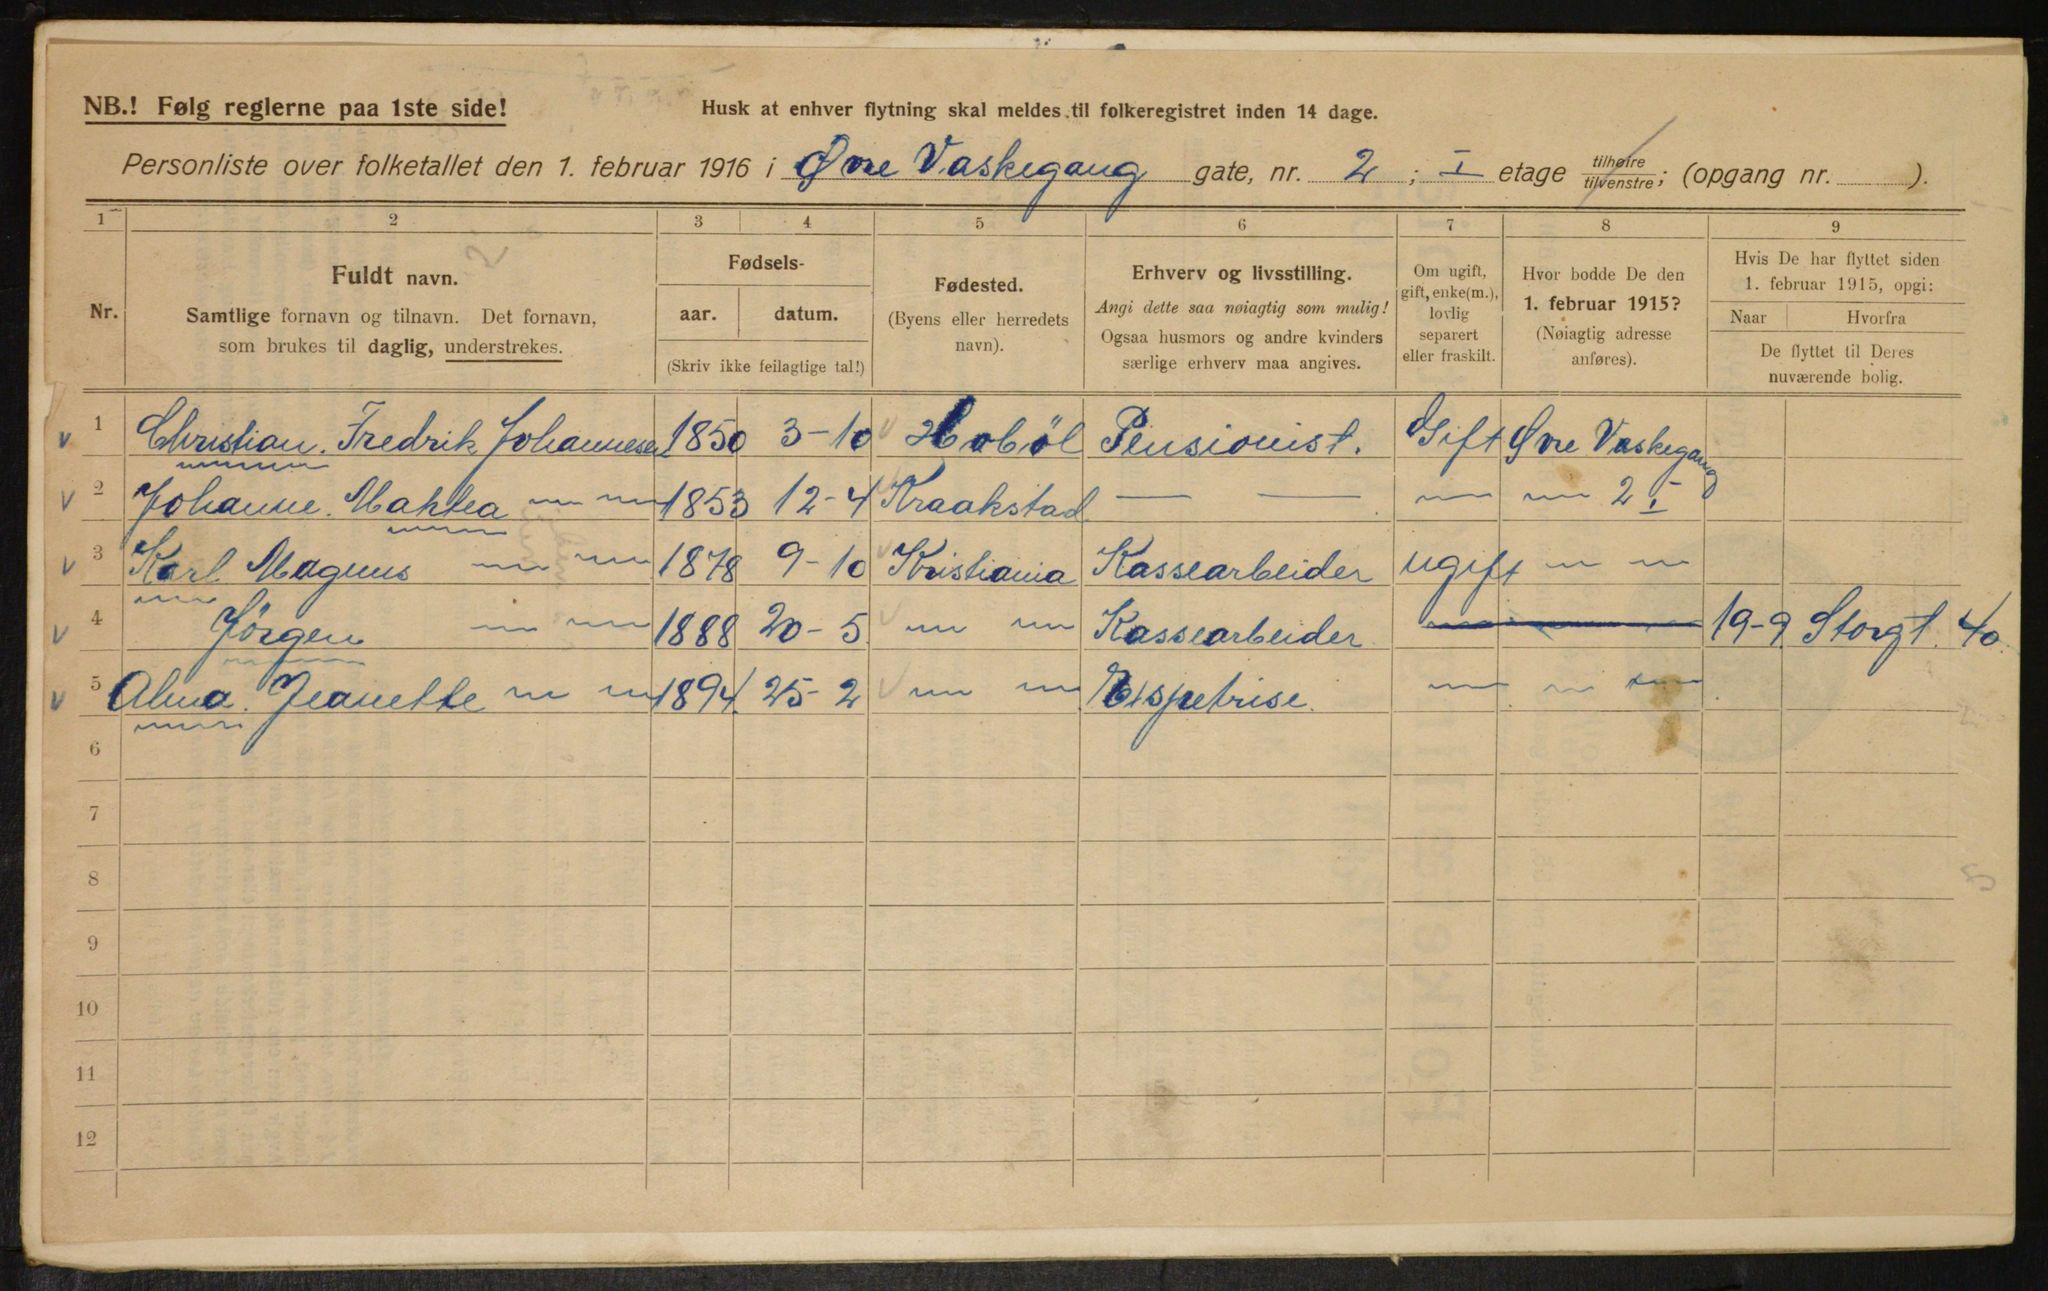 NB.! Følg reglerne paa 1ste side!
Husk at enhver flytning skal meldes til folkeregistret inden 14 dage.
Personliste over folketallet den 1. februar 1916 i Øvre Vaskegang gate, nr. 2; I etage tilhøire/tilvenstre; (opgang nr. ).
1 2 3 4 5 6 7 8 9
Nr.
Fuldt navn.
Samtlige fornavn og tilnavn. Det fornavn,
som brukes til daglig, understrekes.
Fødsels-
aar. datum.
(Skriv ikke feilagtige tal!)
Fødested.
(Byens eller herredets
navn).
Erhverv og livsstilling.
Angi dette saa nøiagtig som mulig!
Ogsaa husmors og andre kvinders
særlige erhverv maa angives.
Om ugift,
gift, enke(m.),
lovlig
separert
eller fraskilt.
Hvor bodde De den
1. februar 1915?
(Nøiagtig adresse
anføres).
Hvis De har flyttet siden
1. februar 1915, opgi:
Naar Hvorfra
De flyttet til Deres
nuværende bolig.
1 Christian. Fredrik Johannesen 1850 3-10 Hoböl Pensionist. Gift Øvre Vaskegang
2 Johanne. Mathea 〃 〃 1853 12-4 Kraakstad — — 〃 〃 2 I
3 Karl Magnus 〃 〃 1878 9-10 Kristiania Kassearbeider ugift 〃 〃
4 Jörgen 〃 〃 1888 20-5 〃 〃 Kassearbeider 〃 19-9 Storgt. 40.
5 Alma. Jeanette 〃 〃 1894. 25-2 〃 〃 〃 〃 〃
6
7
8
9
10
11
12